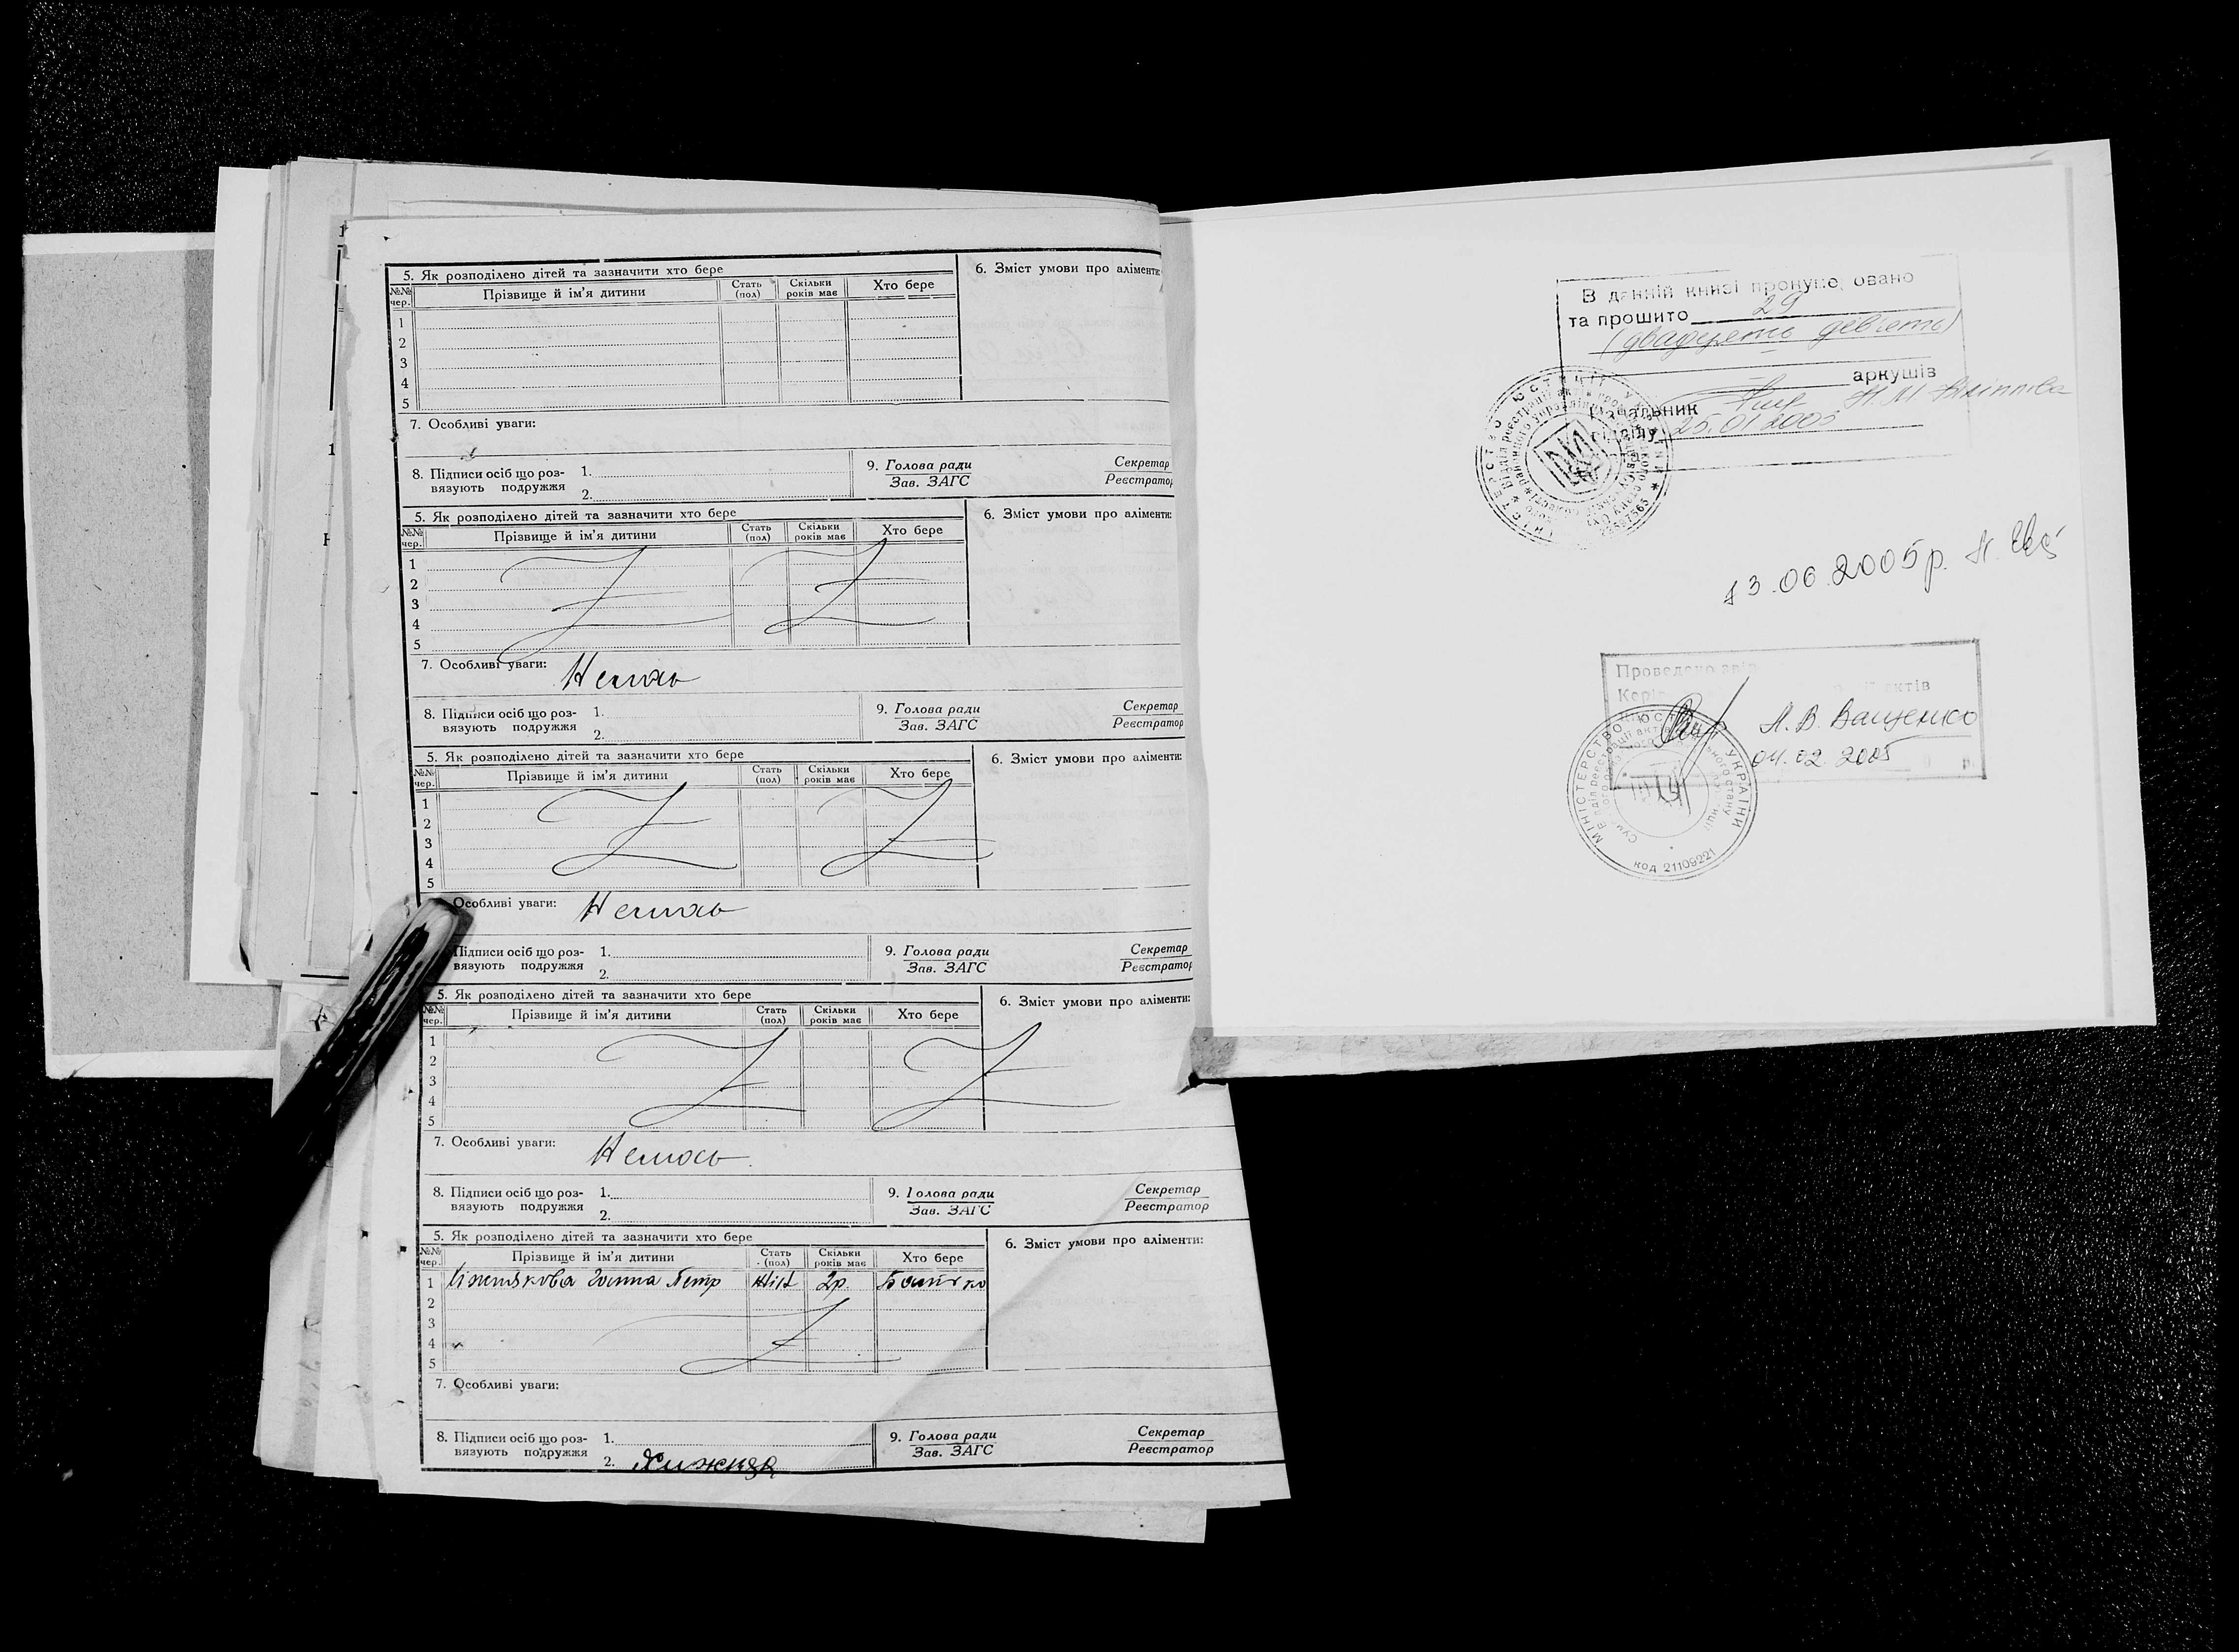 5. Як розподілено дітей та зазначити хто бере
6. Зміст умови про аліменти:
№№ чер.
Прізвище й ім'я дитини
Стать (пол)
Скільки років має
Хто бере
1
2
3
4
5
7. Особливі уваги:
8. Підписи осіб що роз-
вязують подружжя
1.
2.
9. Голова ради
Зав. ЗАГС
Секретар
Реєстратор
5. Як розподілено дітей та зазначити хто бере
6. Зміст умови про аліменти:
№№ чер.
Прізвище й ім'я дитини
Стать (пол)
Скільки років має
Хто бере
1
2
3
4
5
7. Особливі уваги:
8. Підписи осіб що роз-
вязують подружжя
1.
2.
9. Голова ради
Зав. ЗАГС
Секретар
Реєстратор
5. Як розподілено дітей та зазначити хто бере
6. Зміст умови про аліменти:
№№ чер.
Прізвище й ім'я дитини
Стать (пол)
Скільки років має
Хто бере
1
2
3
4
5
Особливі уваги:
Підписи осіб що роз-
вязують подружжя
1.
2.
9. Голова ради
Зав. ЗАГС
Секретар
Реєстратор
5. Як розподілено дітей та зазначити хто бере
6. Зміст умови про аліменти:
№№ чер.
Прізвище й ім'я дитини
Стать (пол)
Скільки років має
Хто бере
1
2
3
4
5
7. Особливі уваги:
8. Підписи осіб що роз-
вязують подружжя
1.
2.
9. Голова ради
Зав. ЗАГС
Секретар
Реєстратор
5. Як розподілено дітей та зазначити хто бере
6. Зміст умови про аліменти:
№№ чер.
Прізвище й ім'я дитини
Стать (пол)
Скільки років має
Хто бере
1 Ганна Петр жін 2р. Батько
2
3
4
5
7. Особливі уваги:
8. Підписи осіб що роз-
вязують подружжя
1.
2.
9. Голова ради
Зав. ЗАГС
Секретар
Реєстратор
В данній книзі пронумеровано
та прошито 29
(двадцять дев'ять)
аркушів
Начальник
відділу 25.01 2005
13.06.2005р.
Проведено
актів
Л.В. Ващенко
04.02.2005 р.
МІНІСТЕРСТВО ЮСТИЦІЇ УКРАЇНИ
код 21109221